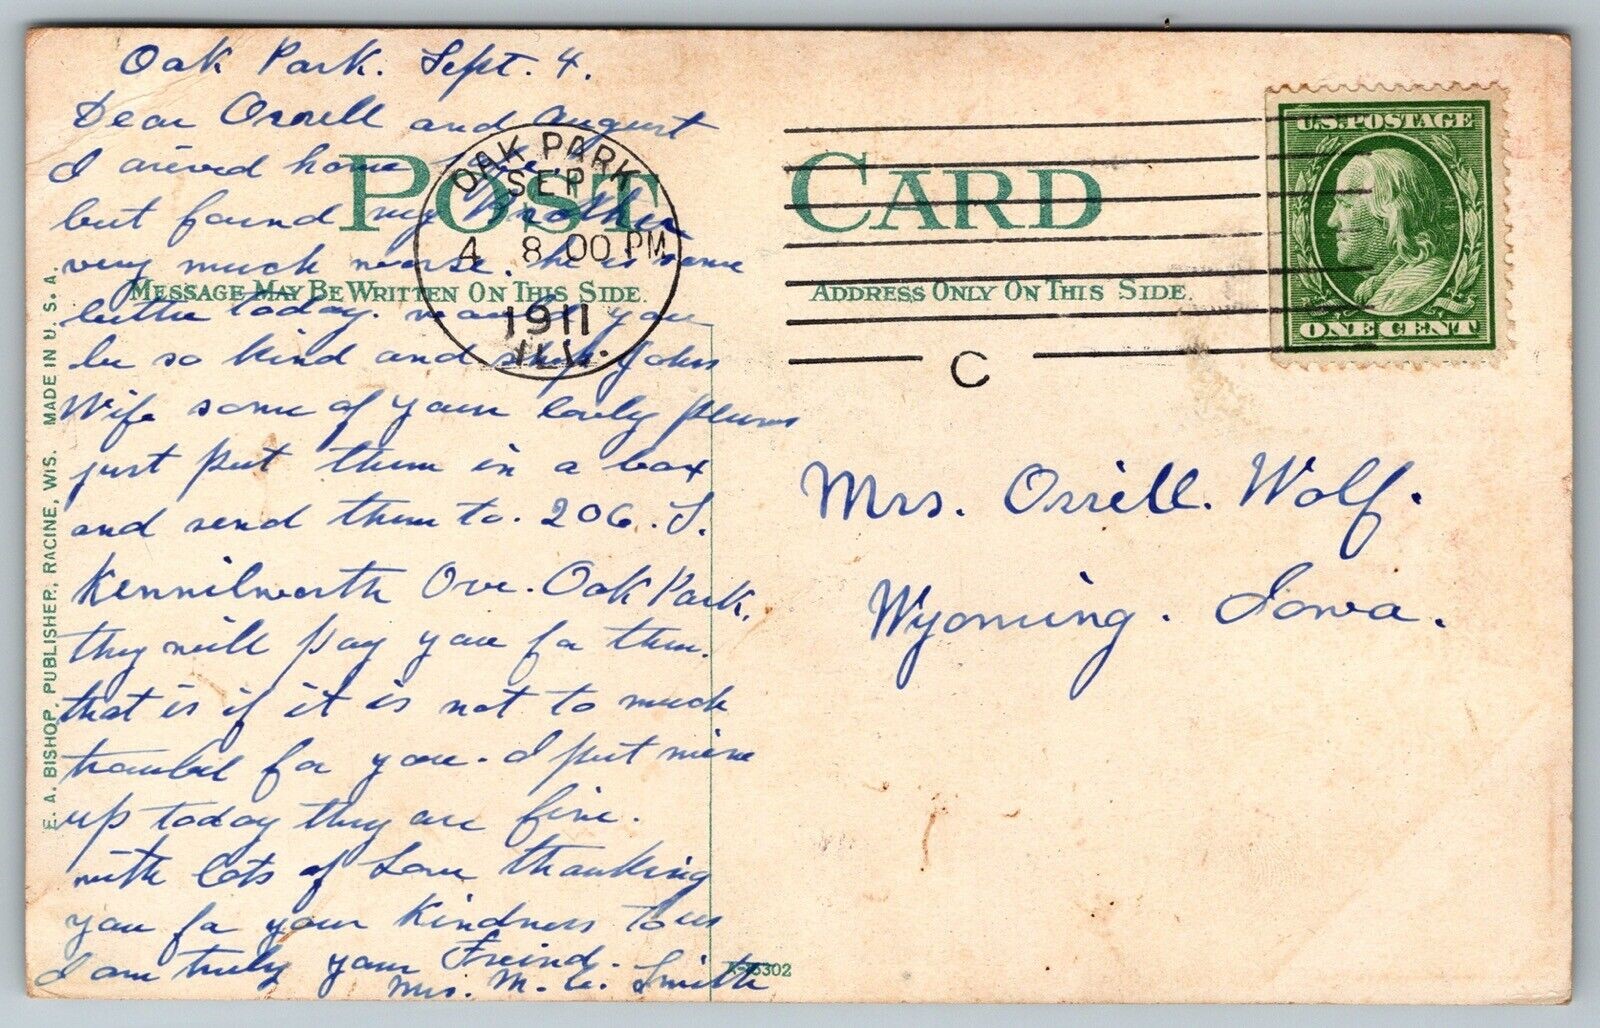 Oak Park. Sept. 4.
Dear Orrell and August
I arived home
but found my Brother
very much worse. he is some
better today. would you
be so kind and ship Johns
Wife some of your lovely plums
just put them in a box
and send them to. 206. S.
Kennilworth Ave. Oak Park.
they will pay you for them.
that is if it is not to much
troubel for you. I put mine
up today they are fine.
with lots of Love thanking
you for your Kindness to us
I am truly your Freind.
Mrs. M. E. Smith
POST CARD
MESSAGE MAY BE WRITTEN ON THIS SIDE.
ADDRESS ONLY ON THIS SIDE.
OAK PARK
SEP
4 8 00 PM
1911
ILL.
C
U.S. POSTAGE
ONE CENT
Mrs. Orrill. Wolf.
Wyoming. Iowa.
E. A. BISHOP, PUBLISHER, RACINE, WIS. MADE IN U. S. A.